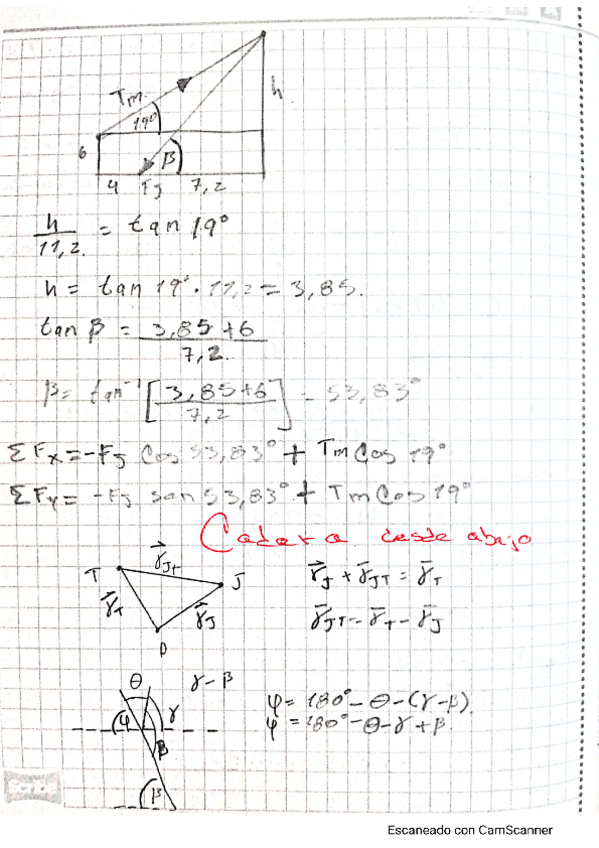 h
Tm.
19°
6
β
4 Fj 7,2
h/11,2. = tan 19°
h = tan 19° · 11,2 = 3,85.
tan β = 3,85+6/7,2.
β= tan⁻¹ [3,85+6/7,2] = 53,83°
ΣFx=-Fj Cos 53,83° + Tm Cos 19°
ΣFy= -Fj sen 53,83° + Tm Cos 19°
Cadera desde abajo
T r⃗JT J r⃗J + r⃗JT = r⃗T
r⃗T r⃗J r⃗JT = r⃗T - r⃗J
θ γ-β
φ γ φ= 180°-θ-(γ-β).
φ=180°-θ-γ+β.
β
β
Escaneado con CamScanner